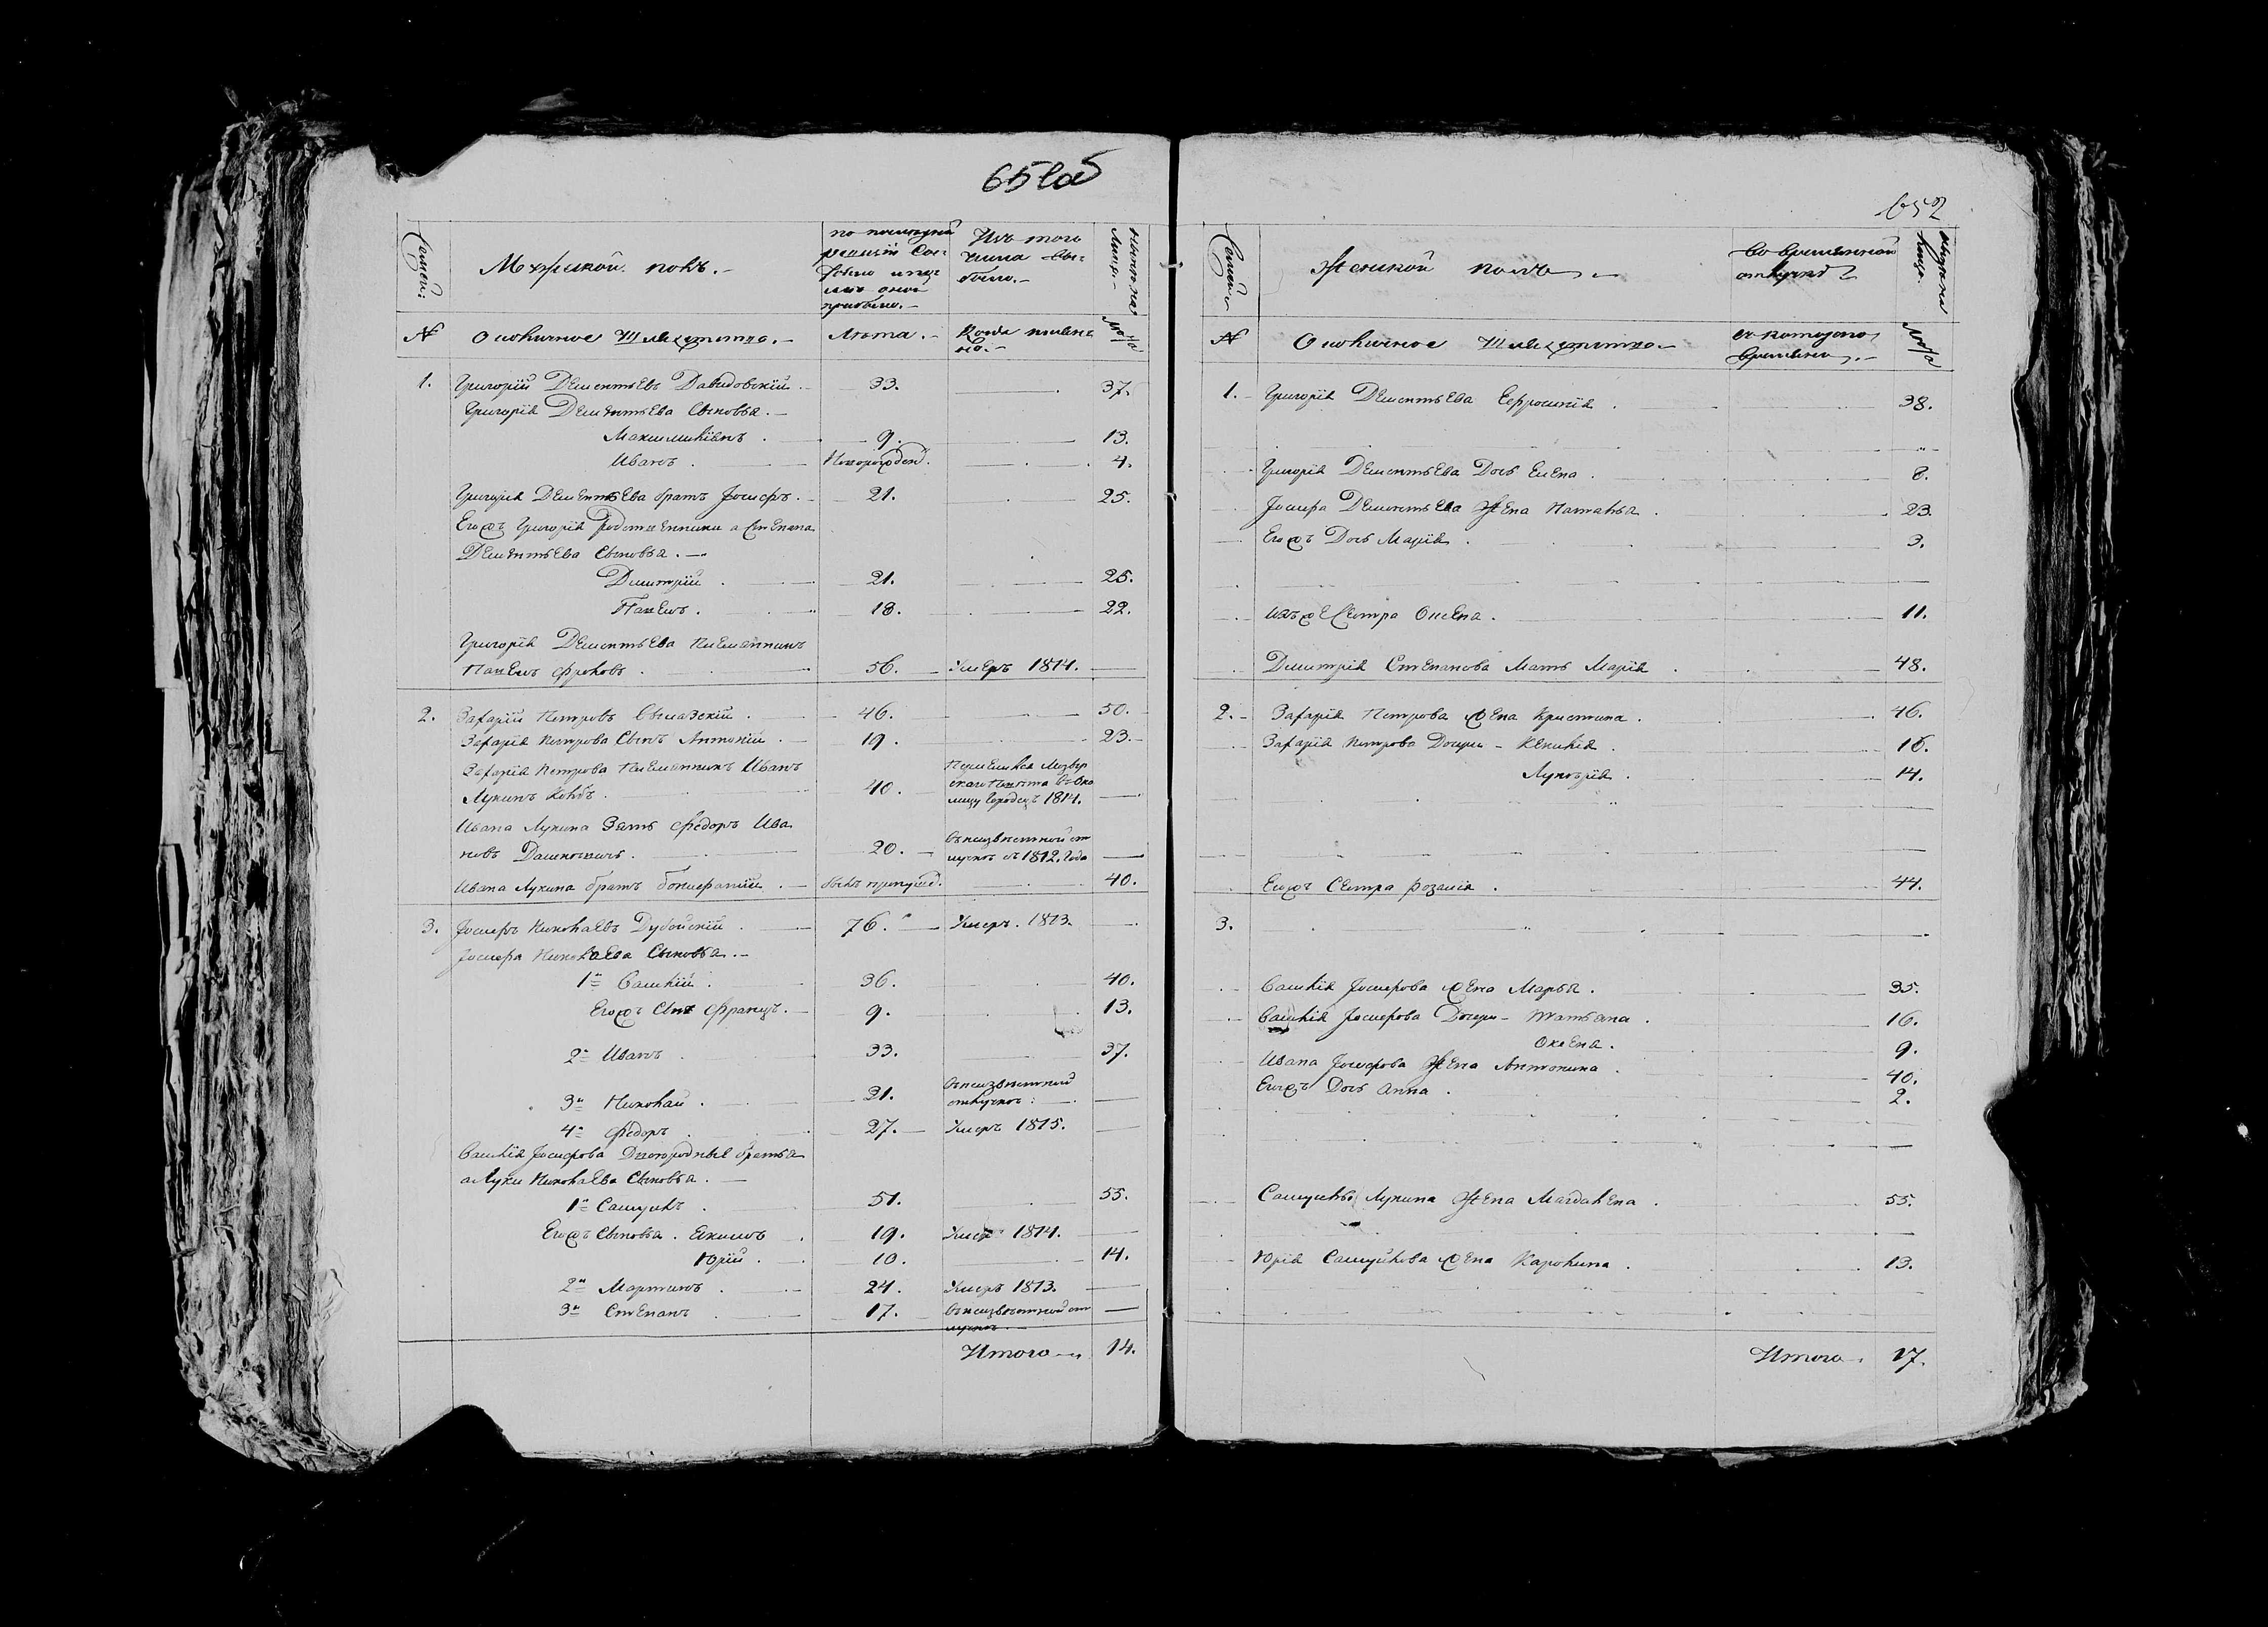 651 об
Семей:
Мужской полъ.-
по последней
ревизіи Сос-
тояло и по-
слѣ оной
прибыло.-
Изъ того
числа вы-
было.-
Нынѣ на
Лицо.-
№
Околичное Шляхетство.-
Лѣта.-
Когда имен-
но.-
Лѣта
1. Григорій Дементьевъ Давидовскій. 33. 37.
Григорія Дементьева Сыновья.-
Максимиліянъ. 9. 13.
Иванъ. Новорожден. 4.
Григорія Дементьева братъ Іосифъ.- 21. 25.
Егожъ Григорія Родственники а Степана
Дементьева Сыновья.-
Дмитрій. 21. 25.
Павелъ. 18. 22.
Григорія Дементьева Племянникъ
Павелъ Фроловъ. 56. Умеръ 1814.
2. Захарій Петровъ 46. 50.
Захарія Петрова Сынъ Антоній. 19. 23.
Захарія Петрова Племянникъ Иванъ
Лукинъ 40. Переселился Мозыр
скаго Повѣта въ Око
лицу Городецъ 1814.
Ивана Лукина Зять Федоръ Ива
новъ Дашкевичъ. 20. въ неизвѣстной от
лучкѣ съ 1812. Года
Ивана Лукина братъ Бонифатій. былъ пропущ. 40.
3. Іосифъ Николаевъ Дубойскій. 76. Умеръ. 1813.
Іосифа Николаева Сыновья.-
1й Василій. 36. 40.
Егожъ Сынъ Францъ. 9. 13.
2й Иванъ 33. 37.
3й Николай. 21. въ неизвѣстной
отлучкѣ:
4й Федоръ 27. Умеръ 1815.
Василія Іосифова Двоюродные братья
а Луки Николаева Сыновья.
1й Самуилъ. 51. 55.
Егожъ Сыновья. Якимъ 19. Умеръ 1814.
Юрій. 10. 14.
2й Мартинъ. 24. Умеръ 1813.
3й Степанъ 17. въ неизвѣстной от
лучкѣ.-
Итого 14.
652
Семей
Женской полъ.-
Во временной
отлучкѣ
Нынѣ на
Лицо.
№
Околичное Шляхетство.-
съ котораго
времени.-
Лѣта
1.- Григорія Дементьева Ефросинія. 38.
Григорія Дементьева Дочь Елена. 8.
Іосифа Дементьева Жена Наталья. 23.
Егожъ Дочь Марія. 3.
ихъ же Сестра Оксена. 11.
Дмитрія Степанова Мать Марія 48.
2.- Захарія Петрова жена Кристина. 46.
Захарія Петрова Дочери- 16.
14.
Егожъ Сестра Розалія. 44.
3.
Василія Іосифова жена Марья. 35.
Василія Іосифова Дочери- Татьяна. 16.
Оксена. 9.
Ивана Іосифова Жена Антонина. 40.
Егожъ Дочь Анна. 2.
Самуила Лукина Жена Магдалена. 55.
Юрія Самуйлова жена Каролина. 13.
Итого 17.